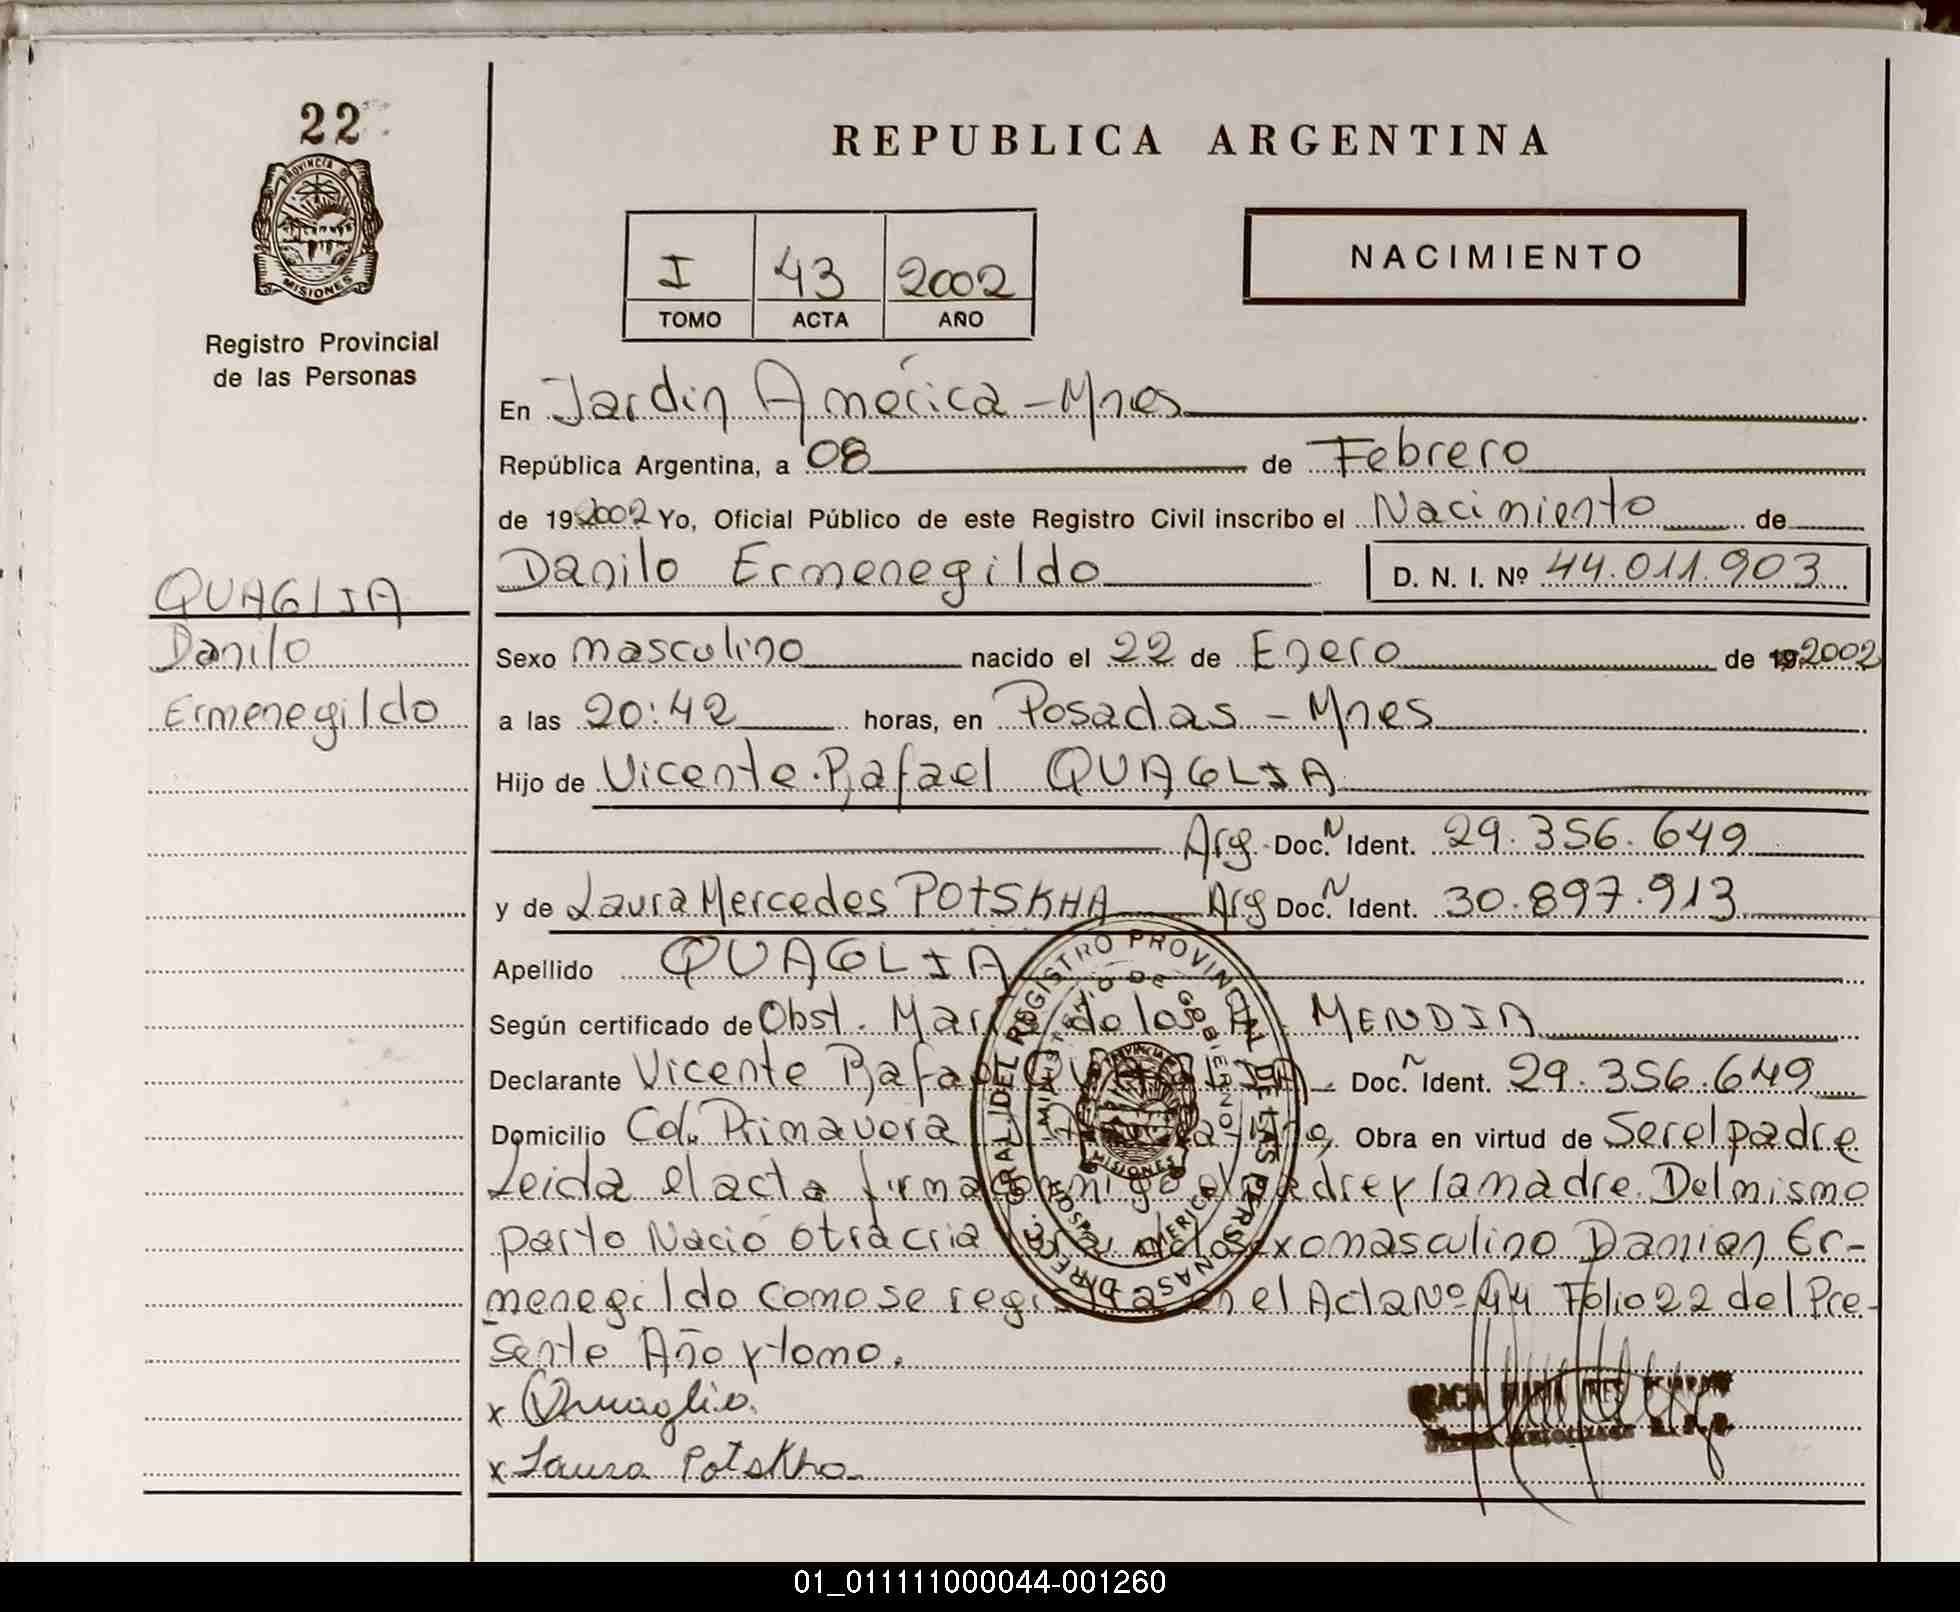 22
PROVINCIA DE
MISIONES
Registro Provincial
de las Personas
QUAGLIA
Danilo
Ermenegildo
REPUBLICA ARGENTINA
I 43 2002
TOMO ACTA AÑO
NACIMIENTO
En Jardin América - Mnes
República Argentina, a 08 de Febrero
de 19 2002 Yo, Oficial Público de este Registro Civil inscribo el Nacimiento de
Danilo Ermenegildo D. N. I. Nº 44.011.903
Sexo masculino nacido el 22 de Enero de 19 2002
a las 20:42 horas, en Posadas - Mnes
Hijo de Vicente Rafael QUAGLIA
Arg. Doc. N Ident. 29.356.649
y de Laura Mercedes POTSKHA Arg Doc. N Ident. 30.897.913
Apellido QUAGLIA
Según certificado de Obst. María de los A. MENDIA
Declarante Vicente Rafael QUAGLIA Doc. N Ident. 29.356.649
Domicilio Col. Primavera Obra en virtud de Ser el padre
Leida el acta firma conmigo el padre y la madre. Del mismo
parto Nació otra cria del sexo masculino Damian Er-
menegildo como se registra en el Acta Nº 44 Folio 22 del Pre-
sente Año y tomo.
x Quaglia.
x Laura Potskha
DIREC. GRAL. DEL REGISTRO PROVINCIAL DE LAS PERSONAS
MINISTERIO DE GOBIERNO
MISIONES
AMERICA
GRACIA
01_011111000044-001260